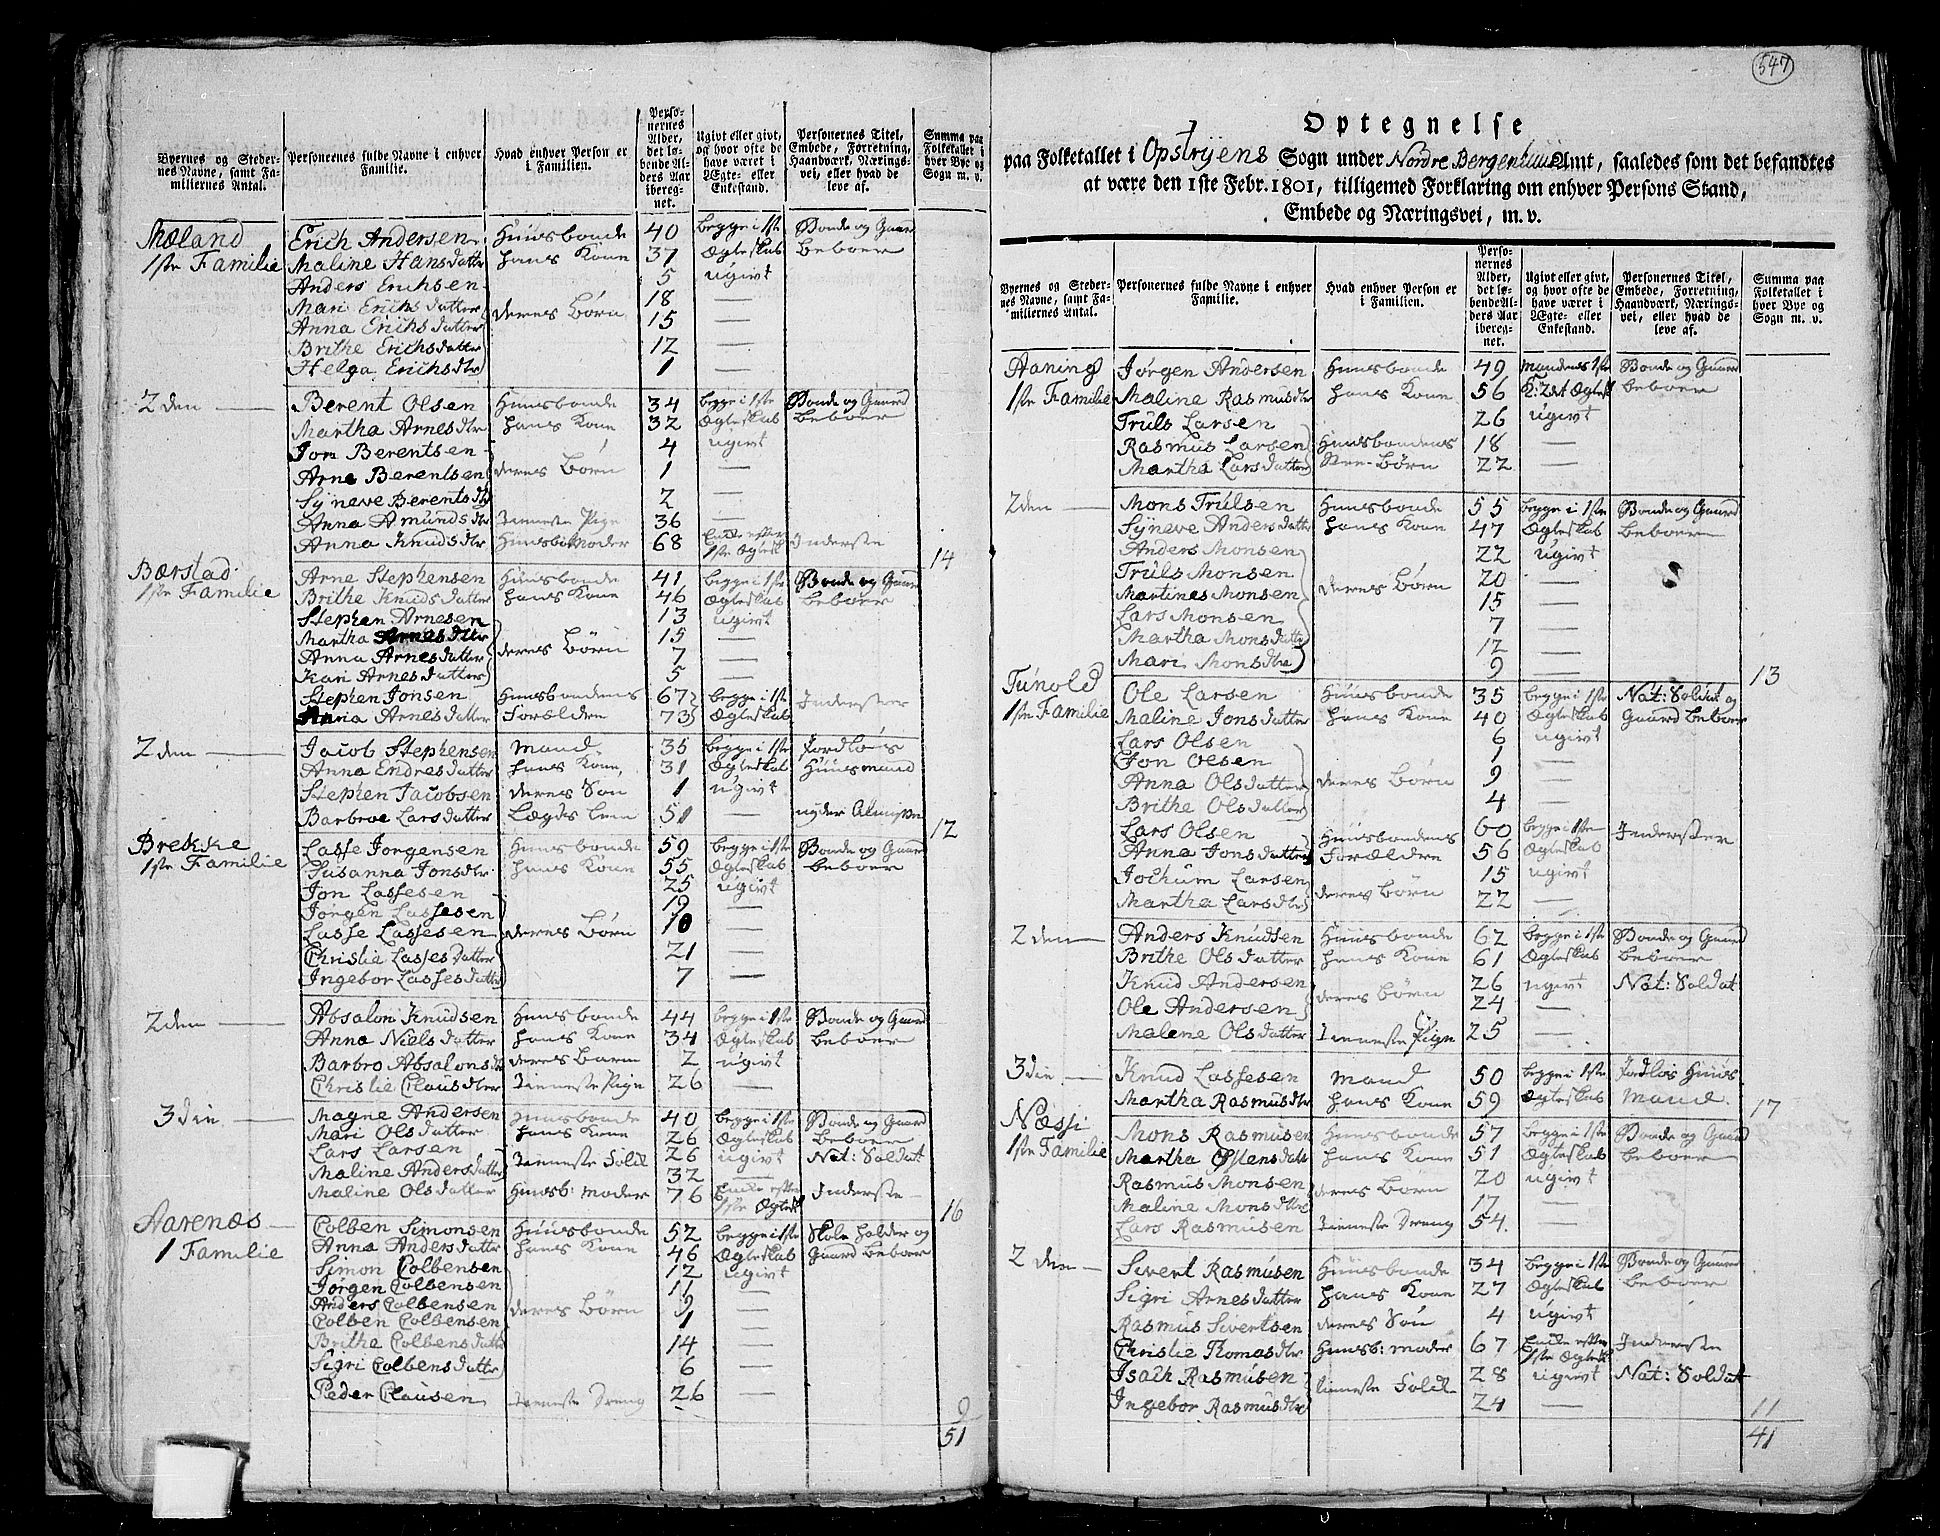 Byernes og Steder-
nes Navne, samt Fa-
miliernes Antal.
Personernes fulde Navne i enhver
Familie.
Hvad enhver Person er
i Familien.
Perso-
nernes
Alder,
det lø-
bende Al-
ders Aar
iberegnet.
Ugivt eller givt,
og hvor ofte de
have været i
Ægte- eller
Enkestand.
Personernes Titel,
Embede, Forretning,
Haandværk, Nærings-
vei, eller hvad de
leve af.
Summa paa
Folketallet i
hver Bye og
Sogn m. v.
Mæland Erich Andersen Huusbonde 40 begge i 1ste Bonde og Gaard
1ste Familie Maline Hansdatter hans Kone 37 Ægteskab beboer
Anders Erichsen 5 ugivt
Mari Erichsdatter deres Børn 18 —
Anna Erichsdatter 15 —
Brithe Erichsdatter 12 —
Helga Erichsdtr 1 —
2den — Berent Olsen Huusbonde 34 begge i 1ste Bonde og Gaard
Martha Arnesdtr hans Kone 32 Ægteskab beboer
Jon Berentsen 4 ugivt
Arne Berentsen deres Børn 1 —
Syneve Berentsdtr 2 —
Anna Amundsdtr Tieneste Pige 36 —
Anna Knudsdtr Huusb: Moder 68 Enke efter 1ste Ægtesk Inderste 14
Bærstad Arne Stephensen Huusbonde 41 begge i 1ste Bonde og Gaard
1ste Familie Brithe Knudsdatter hans Kone 46 Ægteskab beboer
Stephen Arnesen 13 ugivt
Martha Arnesdtr deres Børn 15 —
Anna Arnesdatter 7 —
Kari Arnesdatter 5 —
Stephen Jonsen Huusbondens 67 begge i 1ste Inderster
Anna Arnesdatter Forældre 73 Ægteskab
2den — Jacob Stephensen Mand 35 begge i 1ste Jordløs
Anna Endresdatter hans Kone 31 Ægteskab Huusmand
Stephen Jacobsen deres Søn 1 ugivt
Barbroe Larsdatter Lægds Lem 51 — nyder Almisse 12
Brekke Lasse Jorgensen Huusbonde 59 begge i 1ste Bonde og Gaard
1ste Familie Susanna Jonsdtr hans Kone 55 Ægteskab beboer
Jon Lassesen 25 ugivt
Jorgen Lassesen 19 —
Lasse Lassesen deres Børn 10
Christie Lassesdatter 21 —
Ingebor Lassesdatter 7 —
2den — Absalon Knudsen Huusbonde 44 begge i 1ste Bonde og Gaard
Anna Nielsdatter hans Kone 34 Ægteskab beboer
Barbro Absalonsdtr deres Barn 2 ugivt
Christie Clausdtter Tieneste Pige 26 —
3die — Magne Andersen Huusbonde 40 begge i 1ste Bonde og Gaard
Mari Olsdatter hans Kone 26 Ægteskab beboer
Lars Larsen Tieneste Folk 26 ugivt Nat: Soldat
Maline Andersdatter 32 —
Maline Olsdatter Huusb: Moder 76 Enke efter 1ste Ægtesk Inderste 16
Aarenæs — Colben Simonsen Huusbonde 52 begge i 1ste Skole holder og
1 Familie Anna Andersdatter hans Kone 46 Ægteskab Gaard beboer
Simon Colbensen 12 ugivt
Jørgen Colbensen 11 —
Anders Colbensen deres Børn 9 —
Colben Colbensen 1 —
Brithe Colbensdatter 14 —
Sigri Colbensdatter 6 —
Peder Clausen Tieneste Dreng 26 —
9
51
547
Optegnelse
paa Folketallet i Opstryens Sogn under Nordre Bergenhuus Amt, saaledes som det befandtes
at være den 1ste Febr. 1801, tilligemed Forklaring om enhver Persons Stand,
Embede og Næringsvei, m. v.
Byernes og Steder-
nes Navne, samt Fa-
miliernes Antal.
Personernes fulde Navne i enhver
Familie.
Hvad enhver Person er
i Familien.
Perso-
nernes
Alder,
det lø-
bende Al-
ders Aar
ibereg-
net.
Ugivt eller givt,
og hvor ofte de
have været i
Ægte- eller
Enkestand.
Personernes Titel,
Embede, Forretning,
Haandværk, Nærings-
vei, eller hvad de
leve af.
Summa paa
Folketallet i
hver Bye og
Sogn m. v.
Aaning Jørgen Andersen Huusbonde 49 Mandens 1ste Bonde og Gaard
1ste Familie Maline Rasmusdtr hans Kone 56 K: 2det Ægtesk beboer
Truls Larsen 26 ugivt
Rasmus Larsen Huusbondens 18 —
Martha Larsdatter Stev-Børn 22 —
2den — Mons Trulsen Huusbonde 55 begge i 1ste Bonde og Gaard
Syneve Andersdatter hans Kone 47 Ægteskab beboer
Anders Monsen 22 ugivt
Truls Monsen 20 —
Martines Monsen deres Børn 15 —
Lars Monsen 7 —
Martha Monsdatter 12 —
Mari Monsdtr 9 — 13
Tunold Ole Larsen Huusbonde 35 begge i 1ste Nat: Soldat og
1ste Familie Maline Jonsdatter hans Kone 40 Ægteskab Gaard beboer
Lars Olsen 6 ugivt
Jon Olsen 1 —
Anna Olsdatter deres Børn 9 —
Brithe Olsdatter 4 —
Lars Olsen Huusbondens 60 begge i 1ste Inderster
Anna Jonsdatter Forældre 56 Ægteskab
Jochum Larsen deres Børn 15 ugivt
Martha Larsdtr 22 —
2den — Anders Knudsen Huusbonde 62 begge i 1ste Bonde og Gaard
Brithe Olsdatter hans Kone 61 Ægteskab beboer
Knud Andersen deres Børn 26 ugivt Nat: Soldat
Ole Andersen 24 —
Malene Olsdatter Tieneste Pige 25 —
3die — Knud Lassesen Mand 50 begge i 1ste Jordløs Huus-
Martha Rasmusdtr hans Kone 59 Ægteskab Mand 17
Næssi Mons Rasmusen Huusbonde 57 begge i 1ste Bonde og Gaard
1ste Familie Martha Ostensdatter hans Kone 51 Ægteskab beboer
Rasmus Monsen deres Børn 20 ugivt
Maline Monsdtter 17 —
Lars Rasmusen Tieneste Dreng 54 —
2den — Sivert Rasmusen Huusbonde 34 begge i 1ste Bonde og Gaard
Sigri Arnesdatter hans Kone 27 Ægteskab beboer
Rasmus Sivertsen deres Søn 4 ugivt
Christie Thomasdtr Huusb: Moder 67 Enke efter 1ste Ægtesk Inderste
Isach Rasmusen Tieneste Folk 28 ugivt Nat: Soldat
Ingebor Rasmusdtr 24 —
11
41